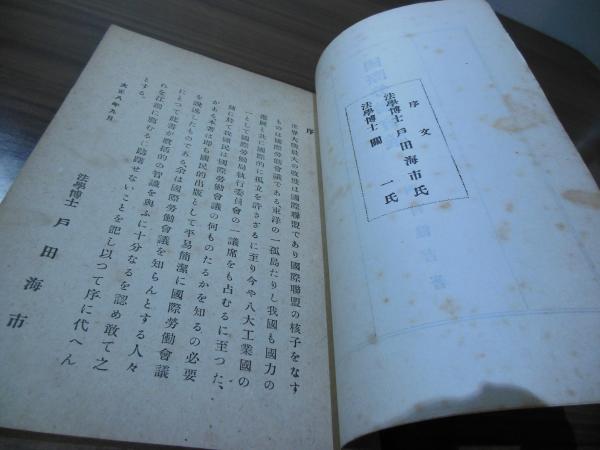 序文
法學博士 戸田海市氏
法學博士 關 一氏
序
世界大戰最大の收穫は國際聯盟であり國際聯盟の核子をなす
ものは國際勞働會議である東洋の一孤島たりし我國も國力の
進展と共に國際的に孤立を許さざるに至り今や八大工業國の
一として國際勞働局執行委員會の一議席をも占むるに至つた、
隨に於て我國民は國際勞働會議の何ものたるかを知るの必要
がある本著は即ち國民的出版として平易簡潔に國際勞働會議
を說述したものである余は國際勞働會議を知らんとする人々
にとつて此書が槪括的の智識を與ふに十分なるを認め敢て之
れを江湖に薦むるに躊躇せないことを記し以つて序に代へん
とする。
大正八年九月
法學博士 戸田海市